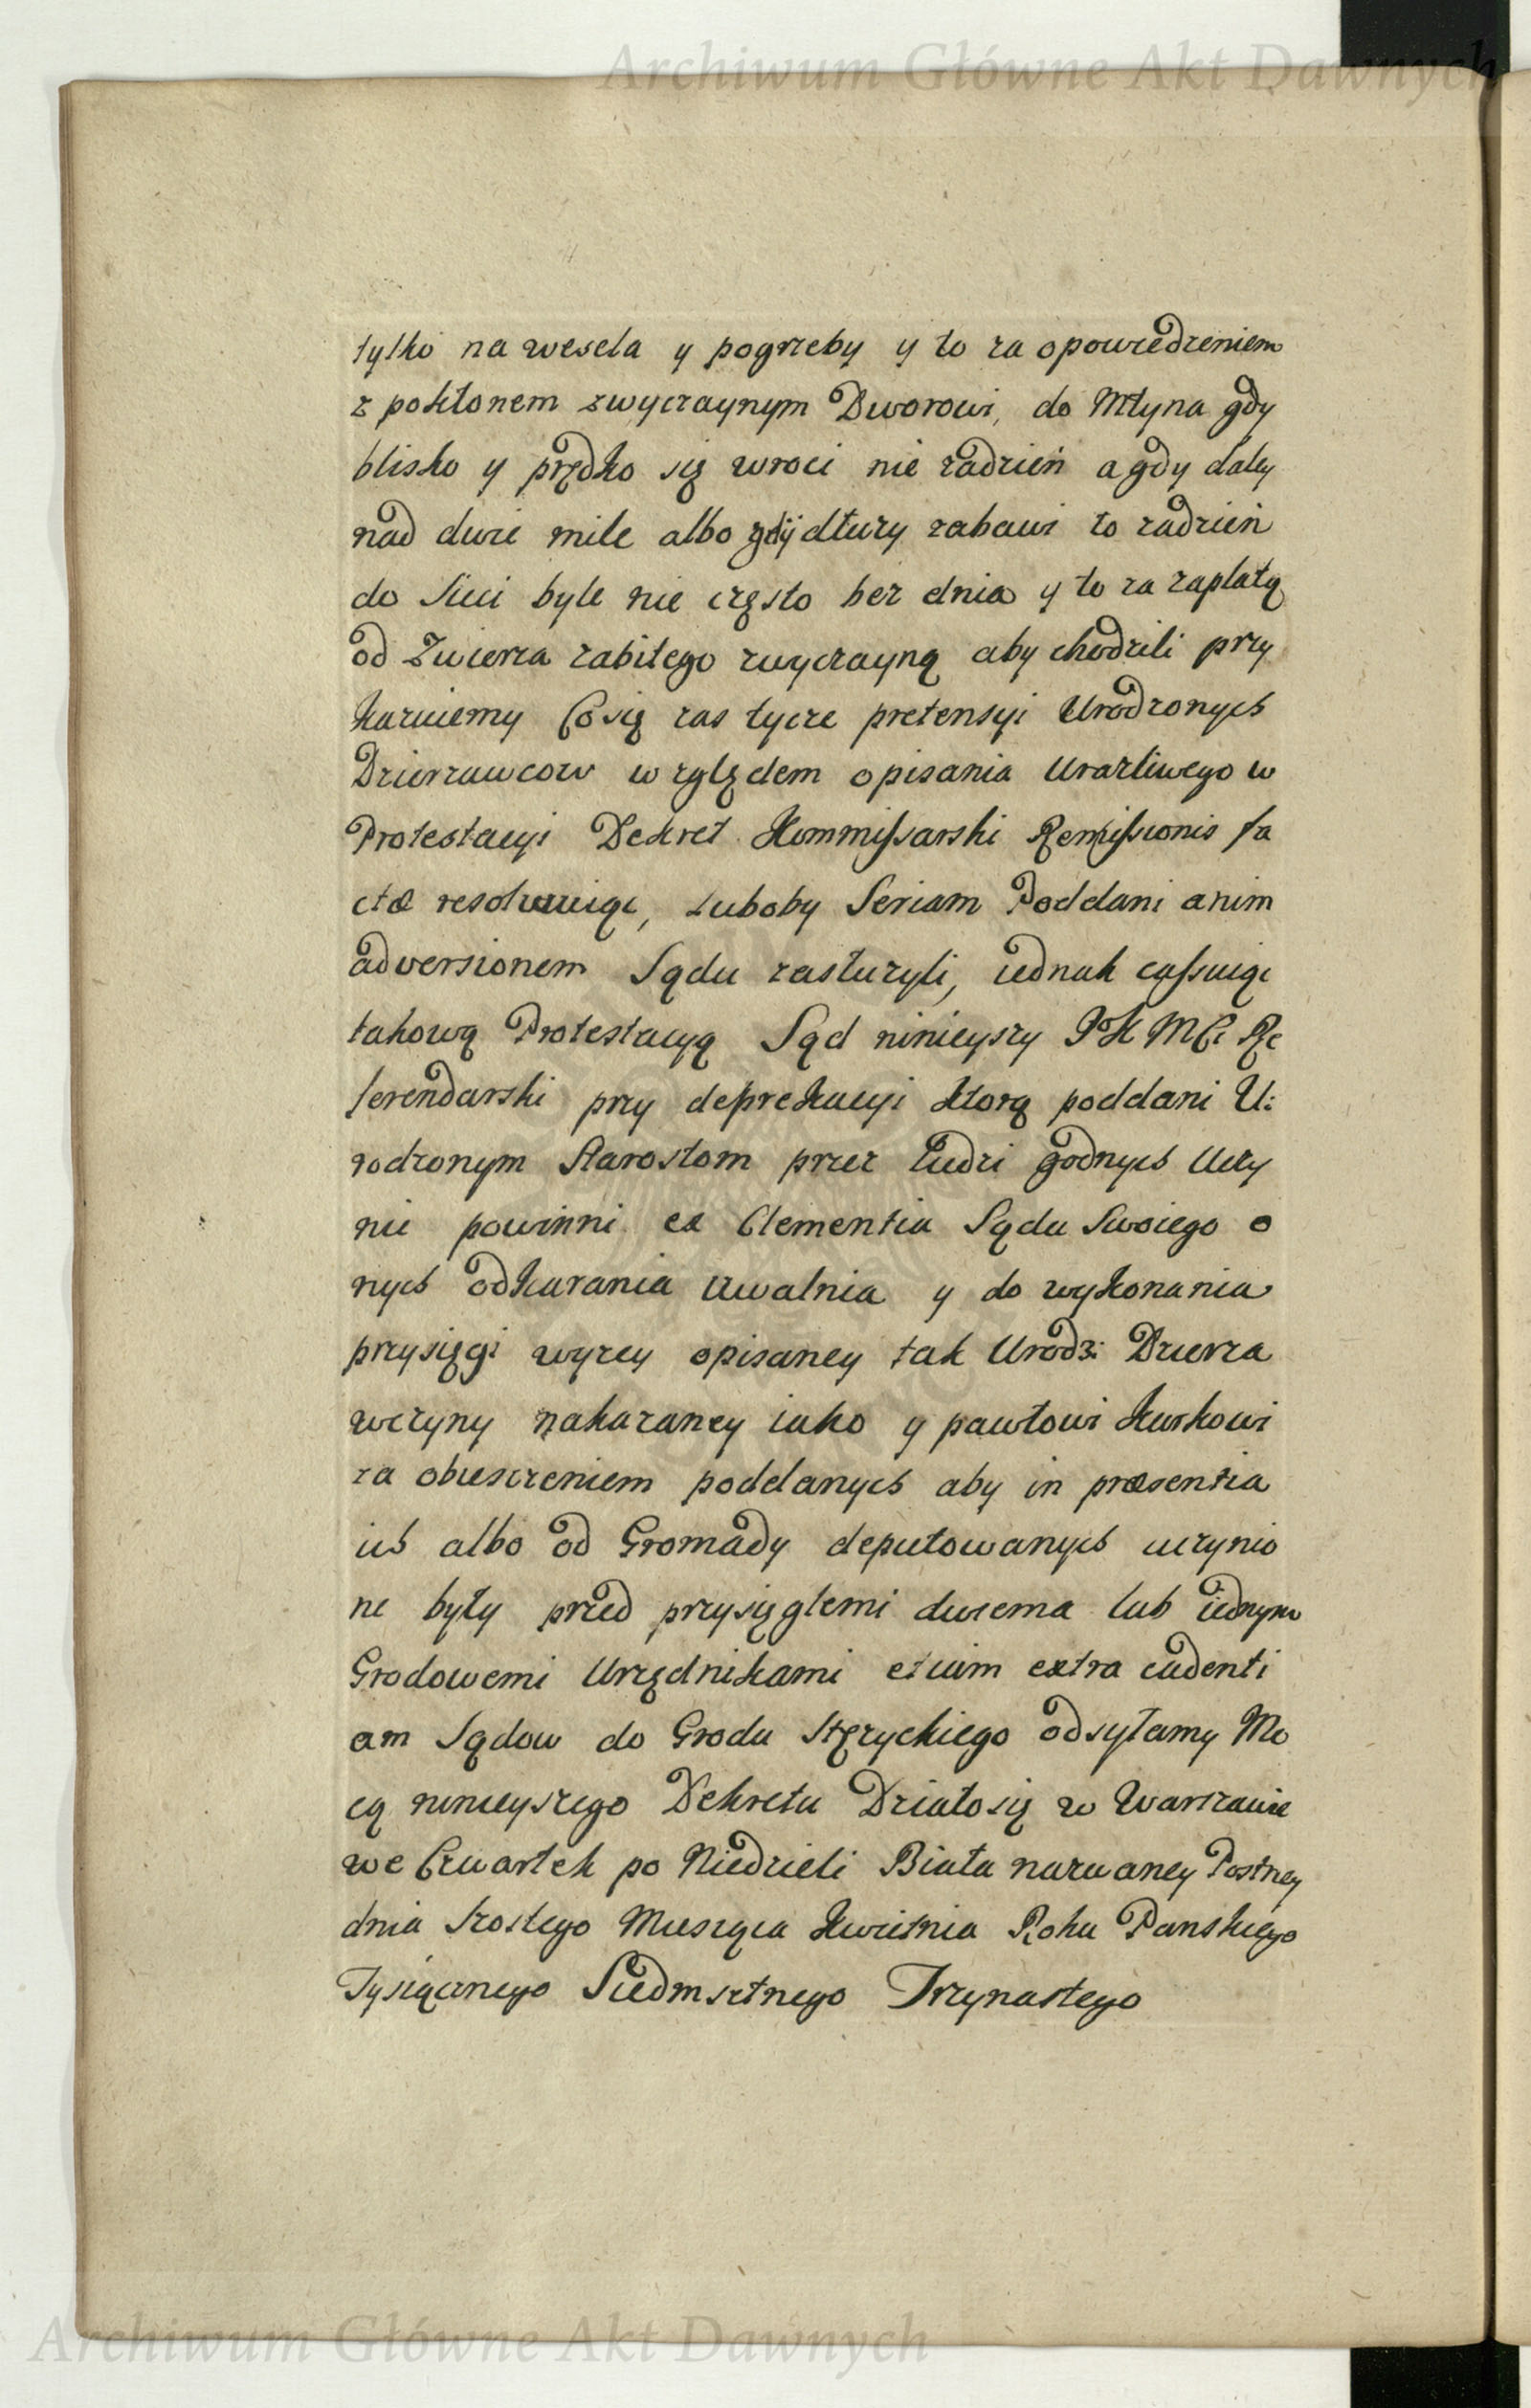 Archiwum Główne Akt Dawnych
tylko na wesela y pogrzeby y to za opowiedzeniem
z pokłonem zwyczaynym Dworowi, do Młyna gdy
blisko y prędko się wroci nie zadzień a gdy daley
nad dwie mile albo gdÿ dłuzy zabawi to zadzień
do Sieci byle nie często bez dnia y to za zapłatą
od Zwierza zabitego zwyczayną aby chodzili przy
kazuiemy Co się zas tycze pretensyi Urodzonych
Dzierzawcow względem opisania Urazliwego w
Protestacyi Dekret Kommissarski Remissionis fa
ctæ resolwuiąc, Luboby Seriam Poddani anim
adversionem Sądu zasłuzyli, iednak cassuiąc
takową Protestacyą Sąd ninieyszy JoK MCi Re
ferendarski przy deprekacyi ktorą poddani U:
rodzonym Starostom przez Ludzi godnych Uczy
nic powinni ex Clementia Sądu Swoiego o
nych od karania Uwalnia y do wykonania
przysięgi wyzey opisaney tak Urodz: Dzierza
wczyny nakazaney iako y pawłowi Kuskowi
za obieszczeniem poddanych aby in præsentia
ich albo od Gromady deputowanych uczynio
ne były przed przysięgłemi dwiema lub iednym
Grodowemi Urzędnikami etiam extra cadenti
am Sądow do Grodu Stęzyckiego odsyłamy Mo
cą ninieyszego Dekretu Działo się w Warszawie
we Czwartek po Niedzieli Biała nazwaney Postney
dnia Szostego Miesząca Kwietnia Roku Panskiego
Tysiącznego Siedmsetnego Trzynastego
Archiwum Główne Akt Dawnych